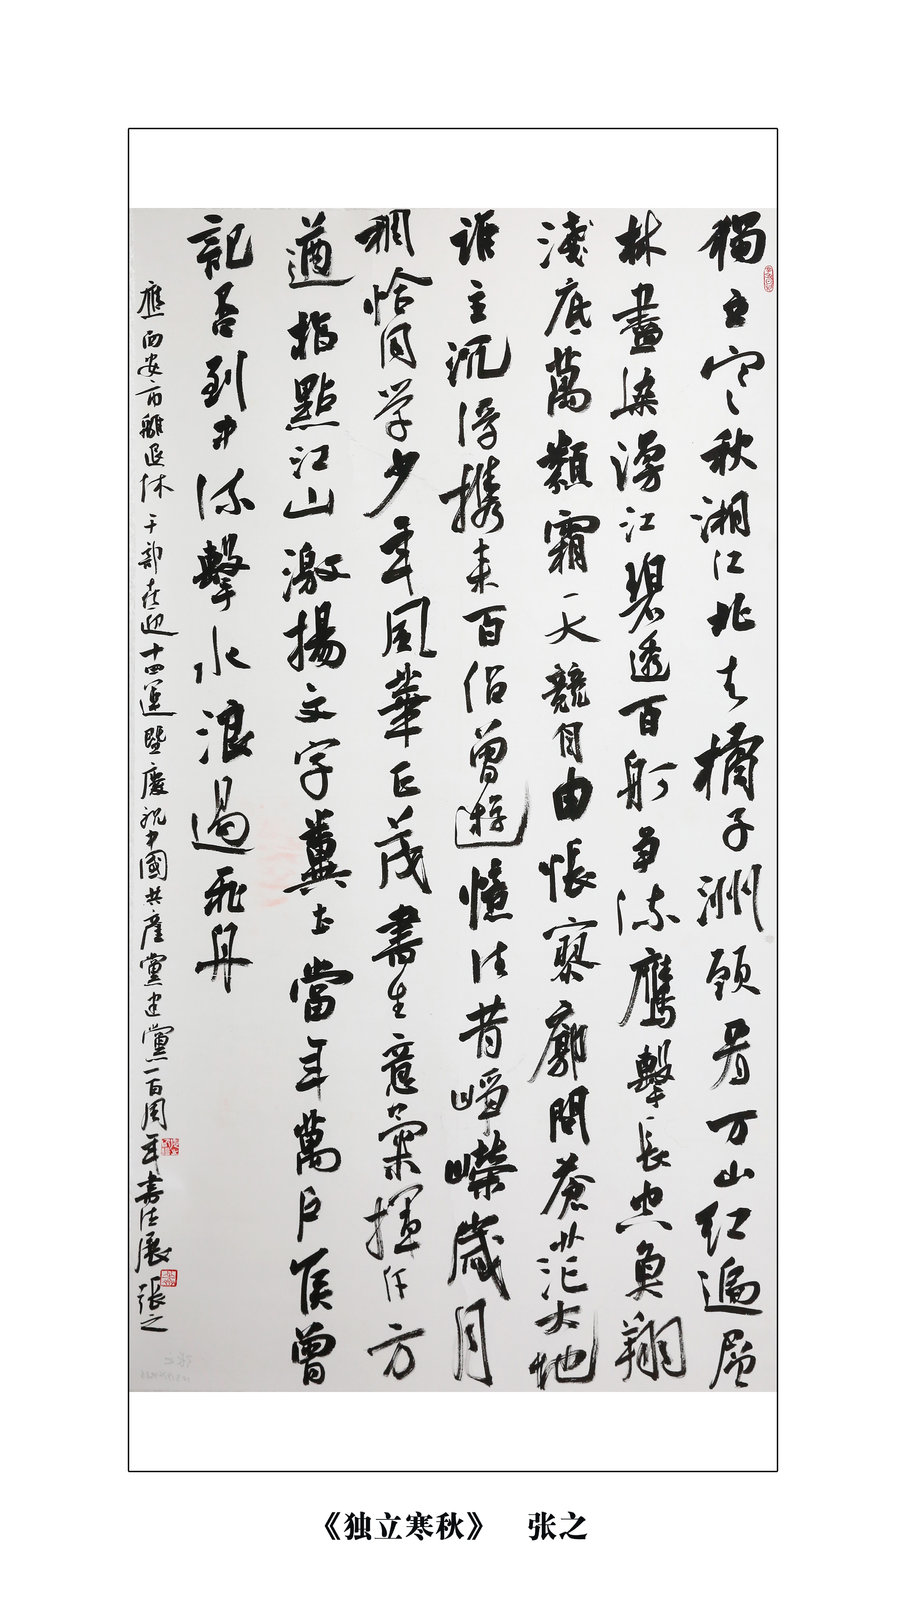 獨立寒秋湘江北去橘子洲頭看万山红遍層
林盡染漫江碧透百舸争流鷹擊長空魚翔
淺底萬類霜天競自由悵寥廓問蒼茫大地
誰主沉浮携来百侣曾遊憶往昔崢嶸歲月
稠恰同学少年風華正茂書生意氣揮斥方
遒指點江山激揚文字糞土當年萬户侯曾
記否到中流擊水浪遏飛舟
應西安市離退休干部喜迎十四運暨慶祝中國共產黨建黨一百周年書法展張之
《独立寒秋》 张之